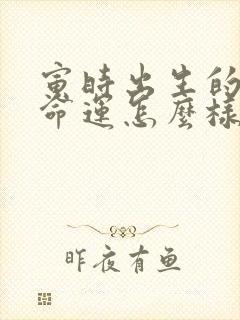 寅時出生的
命運怎麼樣
昨夜有鱼